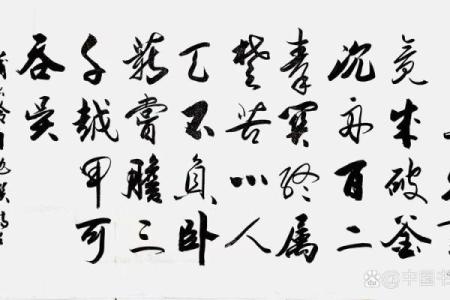 竟成破釜
沉舟百二
秦關终属
楚苦心人
天不負卧
薪嘗膽三
千越甲可
吞吴
中国书